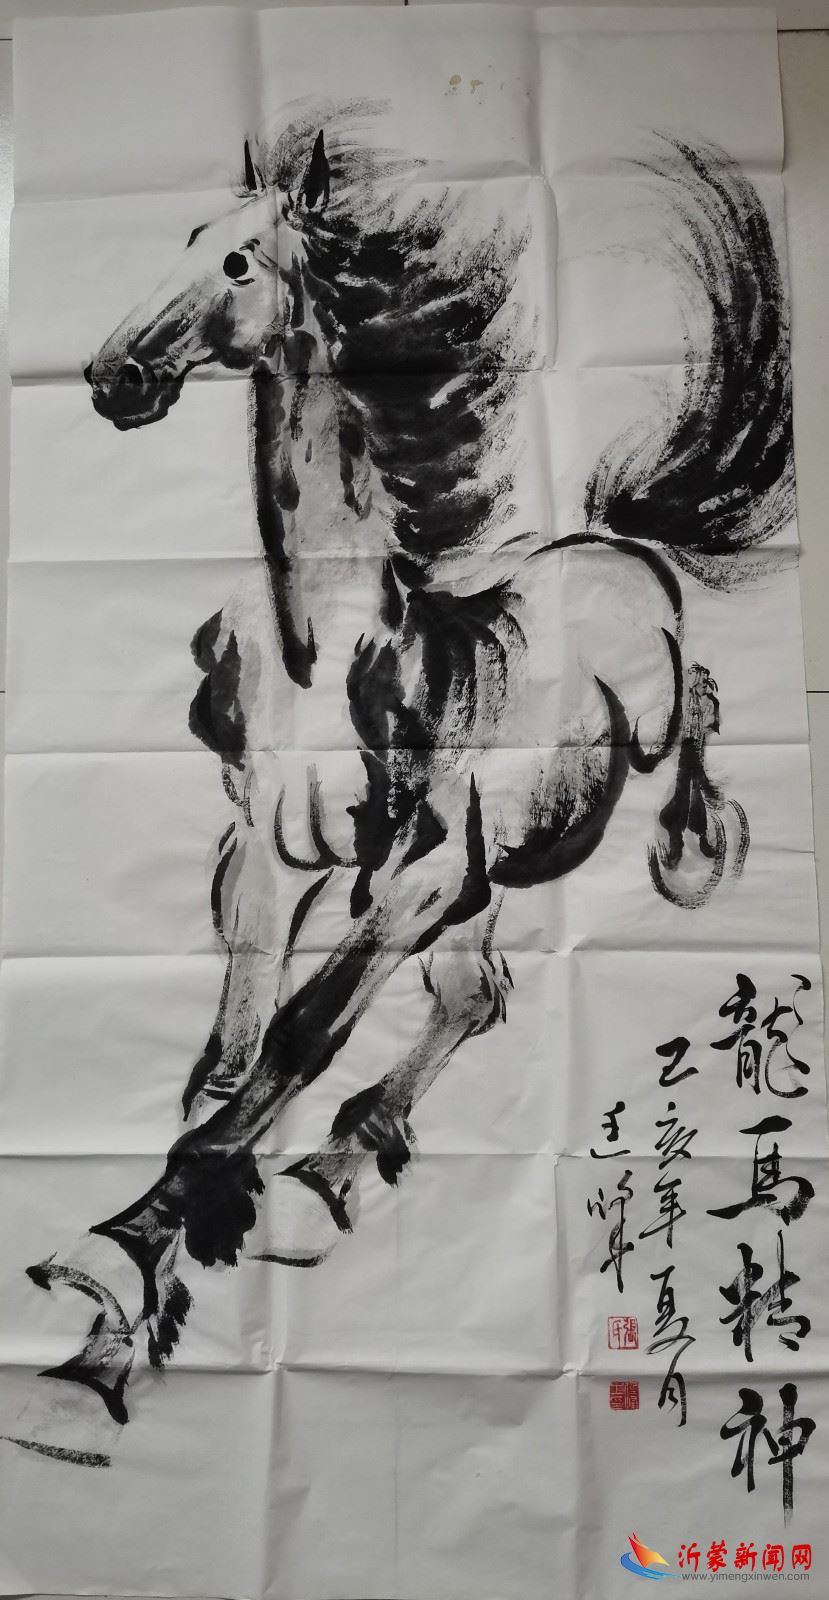 龍馬精神
己亥年夏月
沂蒙新闻网
www.yimengxinwen.com